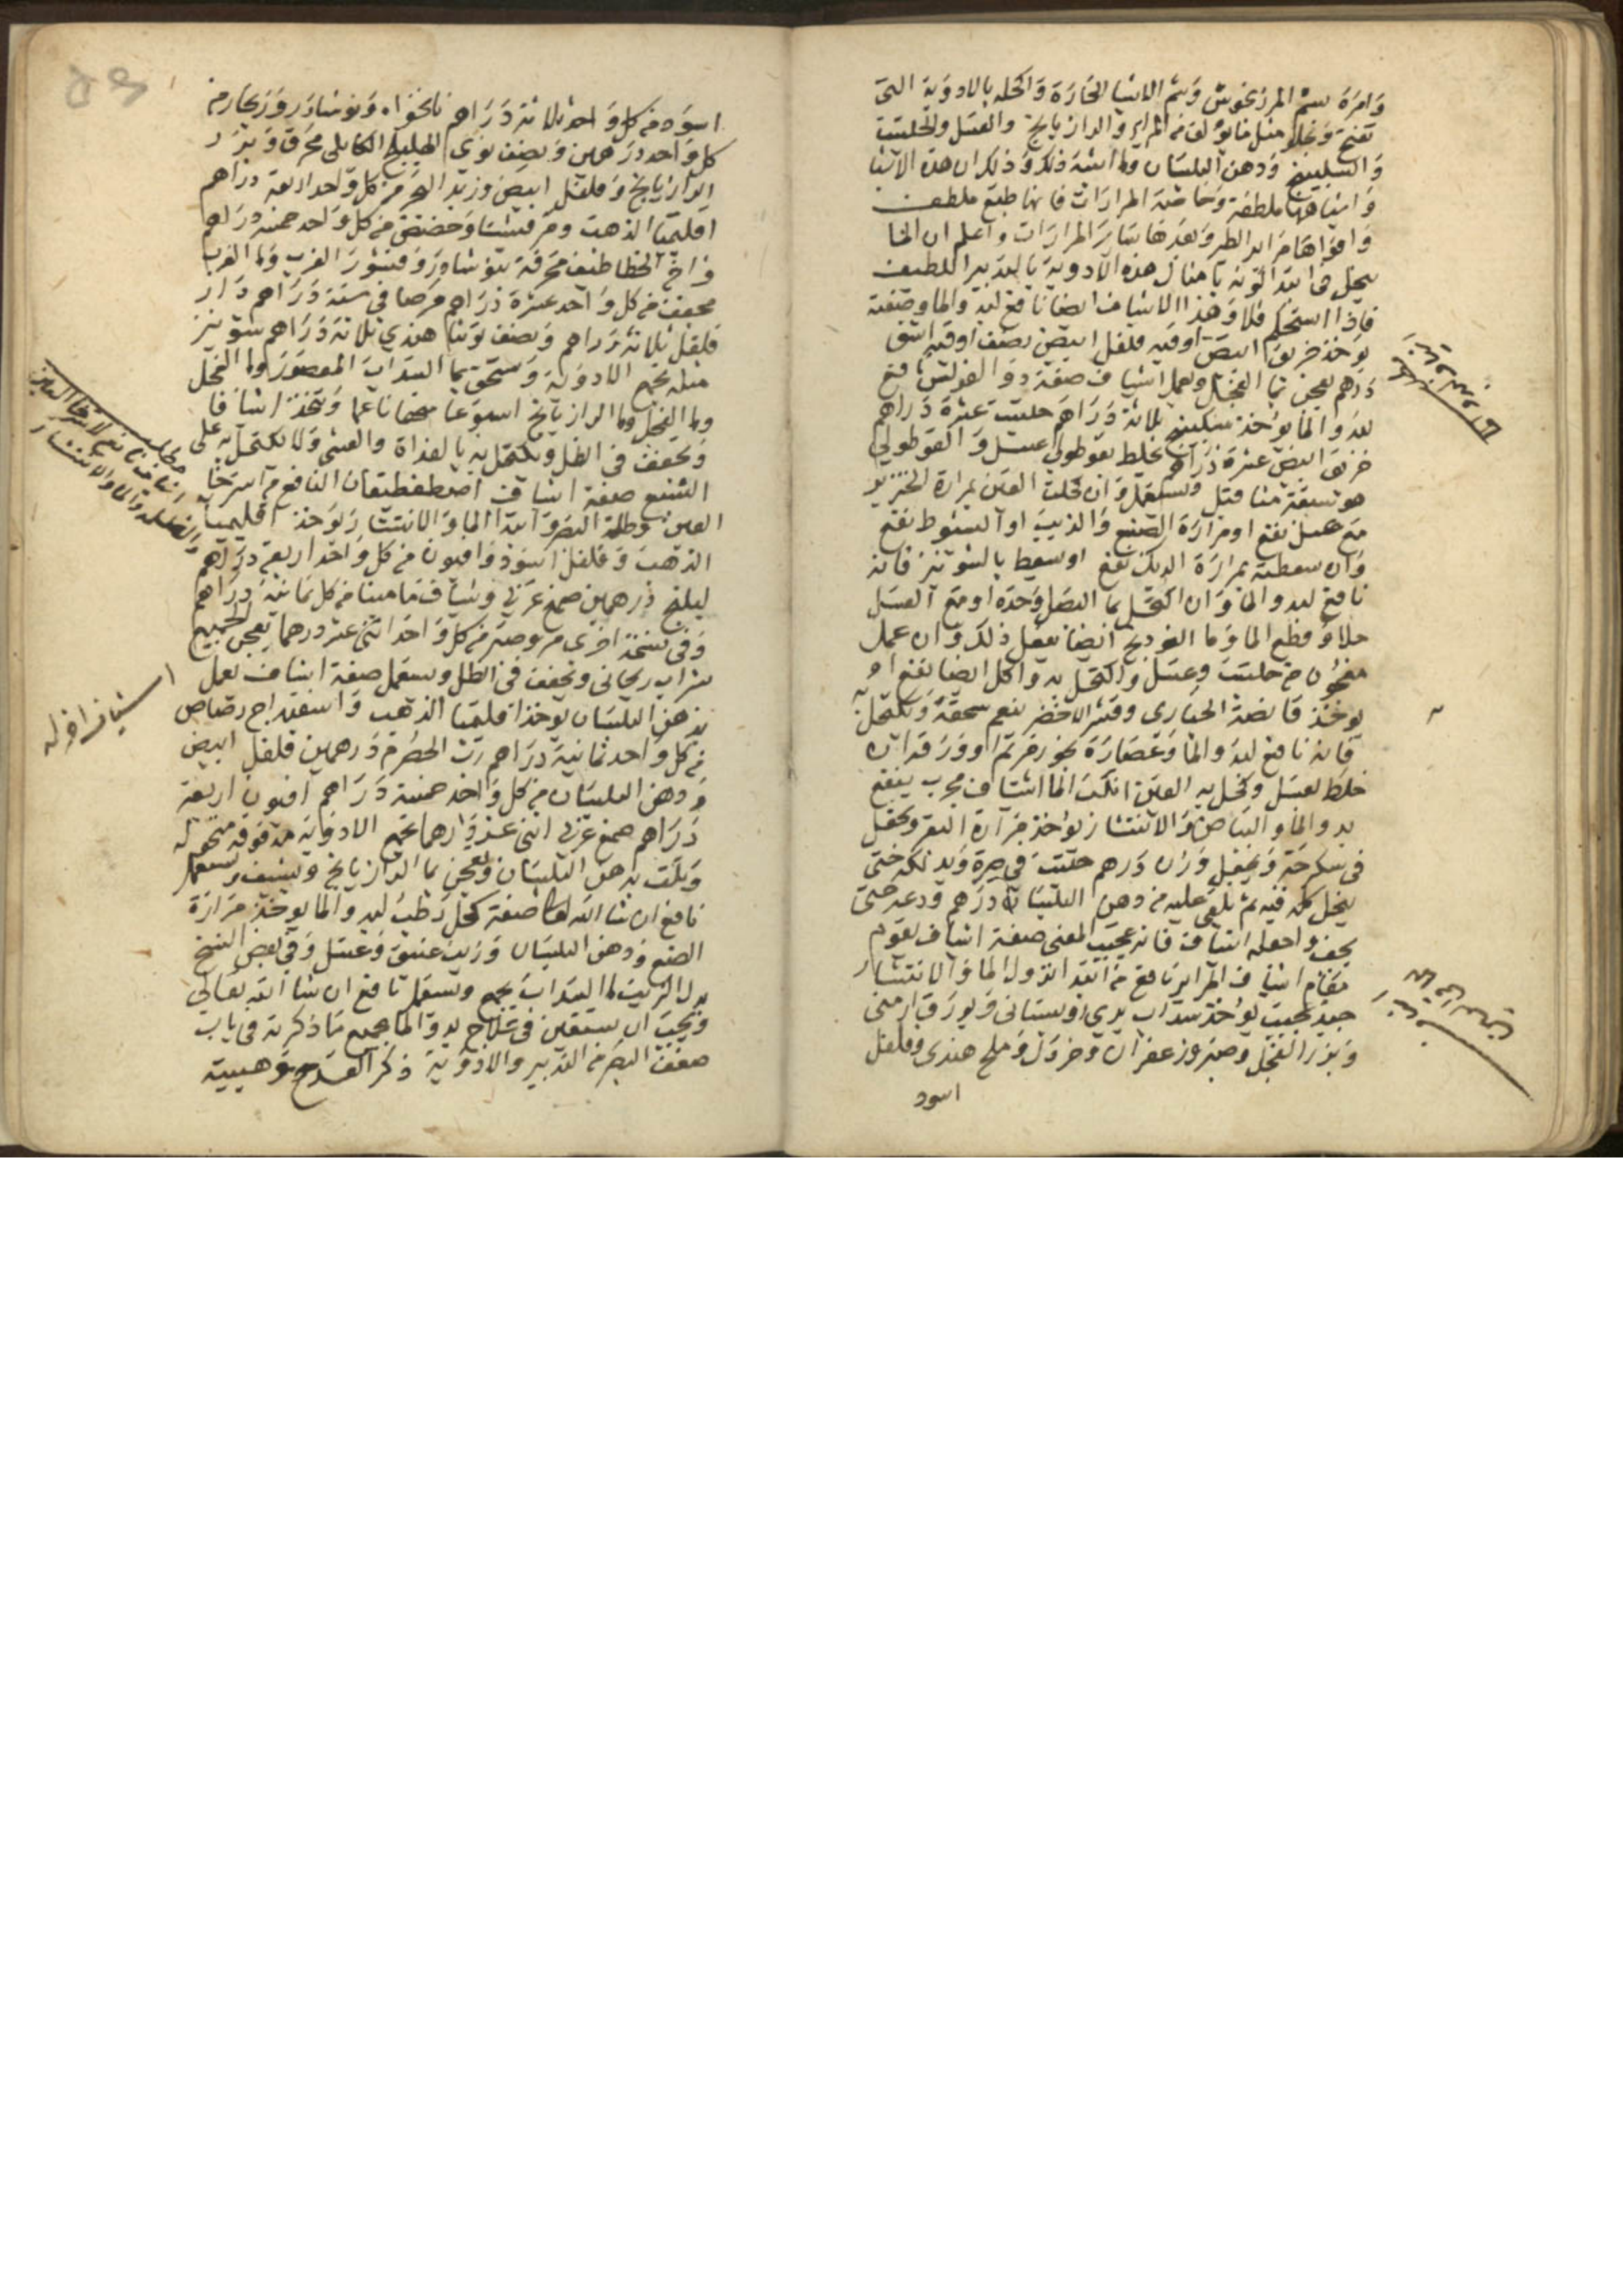 وامره بشم المرزنجوش وشم الاشيا الحارة واكحله بالادوية التى
تفتح وتجلو مثل ما يؤلف من المراير والرازيانج والعسل والحلتيت
والسكبينج ودهن البلسان وما اشبه ذلك وذكر ان هذه الاشيا
واشباهها ملطفة وخاصة المرارات فانها طبع ملطف
واقواها مراير الطير وبعدها ساير المرارات واعلم ان الما
ينحل فى ابتدا كونه بامثال هذه الادوية بالتدبير اللطيف
فاذا استحكم فلا وهذا الاشياف ايضا نافع لبدو الما وصفته
يوخذ خربق ابيض اوقيه فلفل ابيض نصف اوقيه اشق
درهم يعجن بما الفجل ويعمل اشياف صفة دوا الفولس نافع
لبدو الما يوخذ سكبينج ثلاثة دراهم حلتيت عشرة دراهم
خربق ابيض عشرة دراهم يخلط بقوطولى عسل والقوطولي
هو تسعة مثاقيل ويستعمل وان كحلت العين بمرارة الخنزير
مع عسل نفع او مرارة الضبع والذيب او الشبوط نفع
وان سعطته بمرارة الديك نفع او سعط بالشونيز فانه
نافع لبدو الما وان اكتحل بما البصل وحده او مع العسل
جلا وقطع الما وما الفودنج ايضا يفعل ذلك وان عمل
معجون من حلتيت وعسل واكتحل به واكل ايضا نفع او
يوخذ قانصة الحبارى وقشر الاخضر ينعم سحقه ويكتحل به
فانه نافع لبدو الما وعصارة بخور مريم او ورق
خلط بعسل وكحل به العين انكت الما اشياف مجرب ينفع
بدو الما والبياض والانتشار يوخذ مرارة البقر وتجعل
فى سكرجة ويجعل وزن درهم حلتيت فى صرة ويدلكه حتى
ينحل كله فيه ثم يلقى عليه من دهن البلسان درهم ودعه حتى
يجف واجعله اشياف فانه عجيب المعنى صفة اشياف يقوم
مقام اشياف المراير نافع من ابتدا نزول الما والانتشار
جيد عجيب يوخذ سداب بري وبستانى وبورق ارمنى
وبزر الفجل وصبر وزعفران وخردل وملح هندى وفلفل
اسود
اسود من كل واحد ثلاثة دراهم نانخواه ونوشادر وزنجار من
كل واحد درهمين ونصف نوى الهليلج الكابلى محرق وبزر
الرازيانج وفلفل ابيض وزبد البحر من كل واحد اربعة دراهم
اقليميا الذهب ومرقشيثا وحضض من كل واحد خمسة دراهم
فراخ الخطاطيف محرقة بنوشادر وقشور الغرب وما الغرب
مجفف من كل واحد عشرة دراهم مرصافى ستة دراهم دار
فلفل ثلاثة دراهم ونصف توتيا هندي ثلاثة دراهم شونيز
مثله تجمع الادوية وتسحق بما السداب المعصور وما الفجل
وما الفجل وما الرازيانج اسبوعا سحقا ناعما ويتخذ اشيافا
ويجفف فى الظل ويكتحل به بالغداة والعشى ولا يكتحل به على
الشبع صفة اشياف اصطفطيقان النافع من استرخا
العين وظلمة البصر وابتدا الما والانتشار يوخذ اقليميا
الذهب وفلفل اسود وافيون من كل واحد اربعة دراهم
درهمين صمغ عربى وشياف ماميثا من كل ثمانية دراهم
وفى نسخة اخرى من كل واحد اثنى عشر درهما يعجن الجميع
بشراب ريحانى ويجفف فى الظل ويستعمل صفة اشياف يعمل
بدهن البلسان يوخذ اقليميا الذهب واسفيداج رصاص
من كل واحد ثمانية دراهم رب الحصرم درهمين فلفل ابيض
ودهن البلسان من كل واحد خمسة دراهم افيون اربعة
دراهم صمغ عربى اثنى عشر درهما تجمع الادوية مدقوقة منخوله
ويلت بدهن البلسان ويعجن بما الرازيانج ويشيف ويستعمل
نافع ان شا الله تعالى صفة كحل رطب لبدو الما يوخذ مرارة
الضبع ودهن البلسان وزيت عتيق وعسل وفى بعض النسخ
بدل الزيت ما السداب يجمع ويستعمل نافع ان شا الله تعالى
ويجب ان يستعين فى علاج بدو الما بجميع ما ذكرته فى باب
ضعف البصر من التدبير والادوية ذكر القدح وهيئته
اشياف اخر له